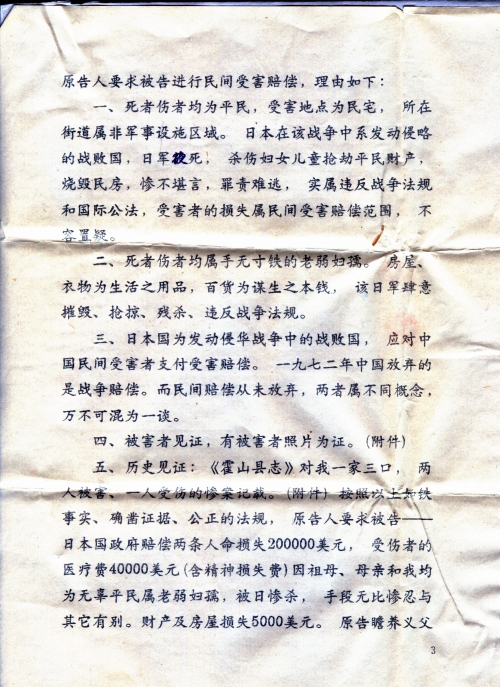 原告人要求被告进行民间受害赔偿，理由如下：
一、死者伤者均为平民，受害地点为民宅， 所在
街道属非军事设施区域。 日本在该战争中系发动侵略
的战败国，日军 死， 杀伤妇女儿童抢劫平民财产，
烧毁民房，惨不堪言，罪责难逃， 实属违反战争法规
和国际公法，受害者的损失属民间受害赔偿范围， 不
容置疑。
二、死者伤者均属手无寸铁的老弱妇孺。 房屋、
衣物为生活之用品，百货为谋生之本钱， 该日军肆意
摧毁、抢掠、残杀、违反战争法规。
三、日本国为发动侵华战争中的战败国， 应对中
国民间受害者支付受害赔偿。 一九七二年中国放弃的
是战争赔偿。而民间赔偿从未放弃，两者属不同概念，
万不可混为一谈。
四、被害者见证，有被害者照片为证。(附件)
五、历史见证：《霍山县志》对我一家三口， 两
人被害、一人受伤的惨案记载。(附件) 按照以上如铁
事实、确凿证据、公正的法规， 原告人要求被告——
日本国政府赔偿两条人命损失200000美元， 受伤者的
医疗费40000美元(含精神损失费)因祖母、母亲和我均
为无辜平民属老弱妇孺，被日惨杀， 手段无比惨忍与
其它有别。财产及房屋损失5000美元。 原告瞻养义父
3